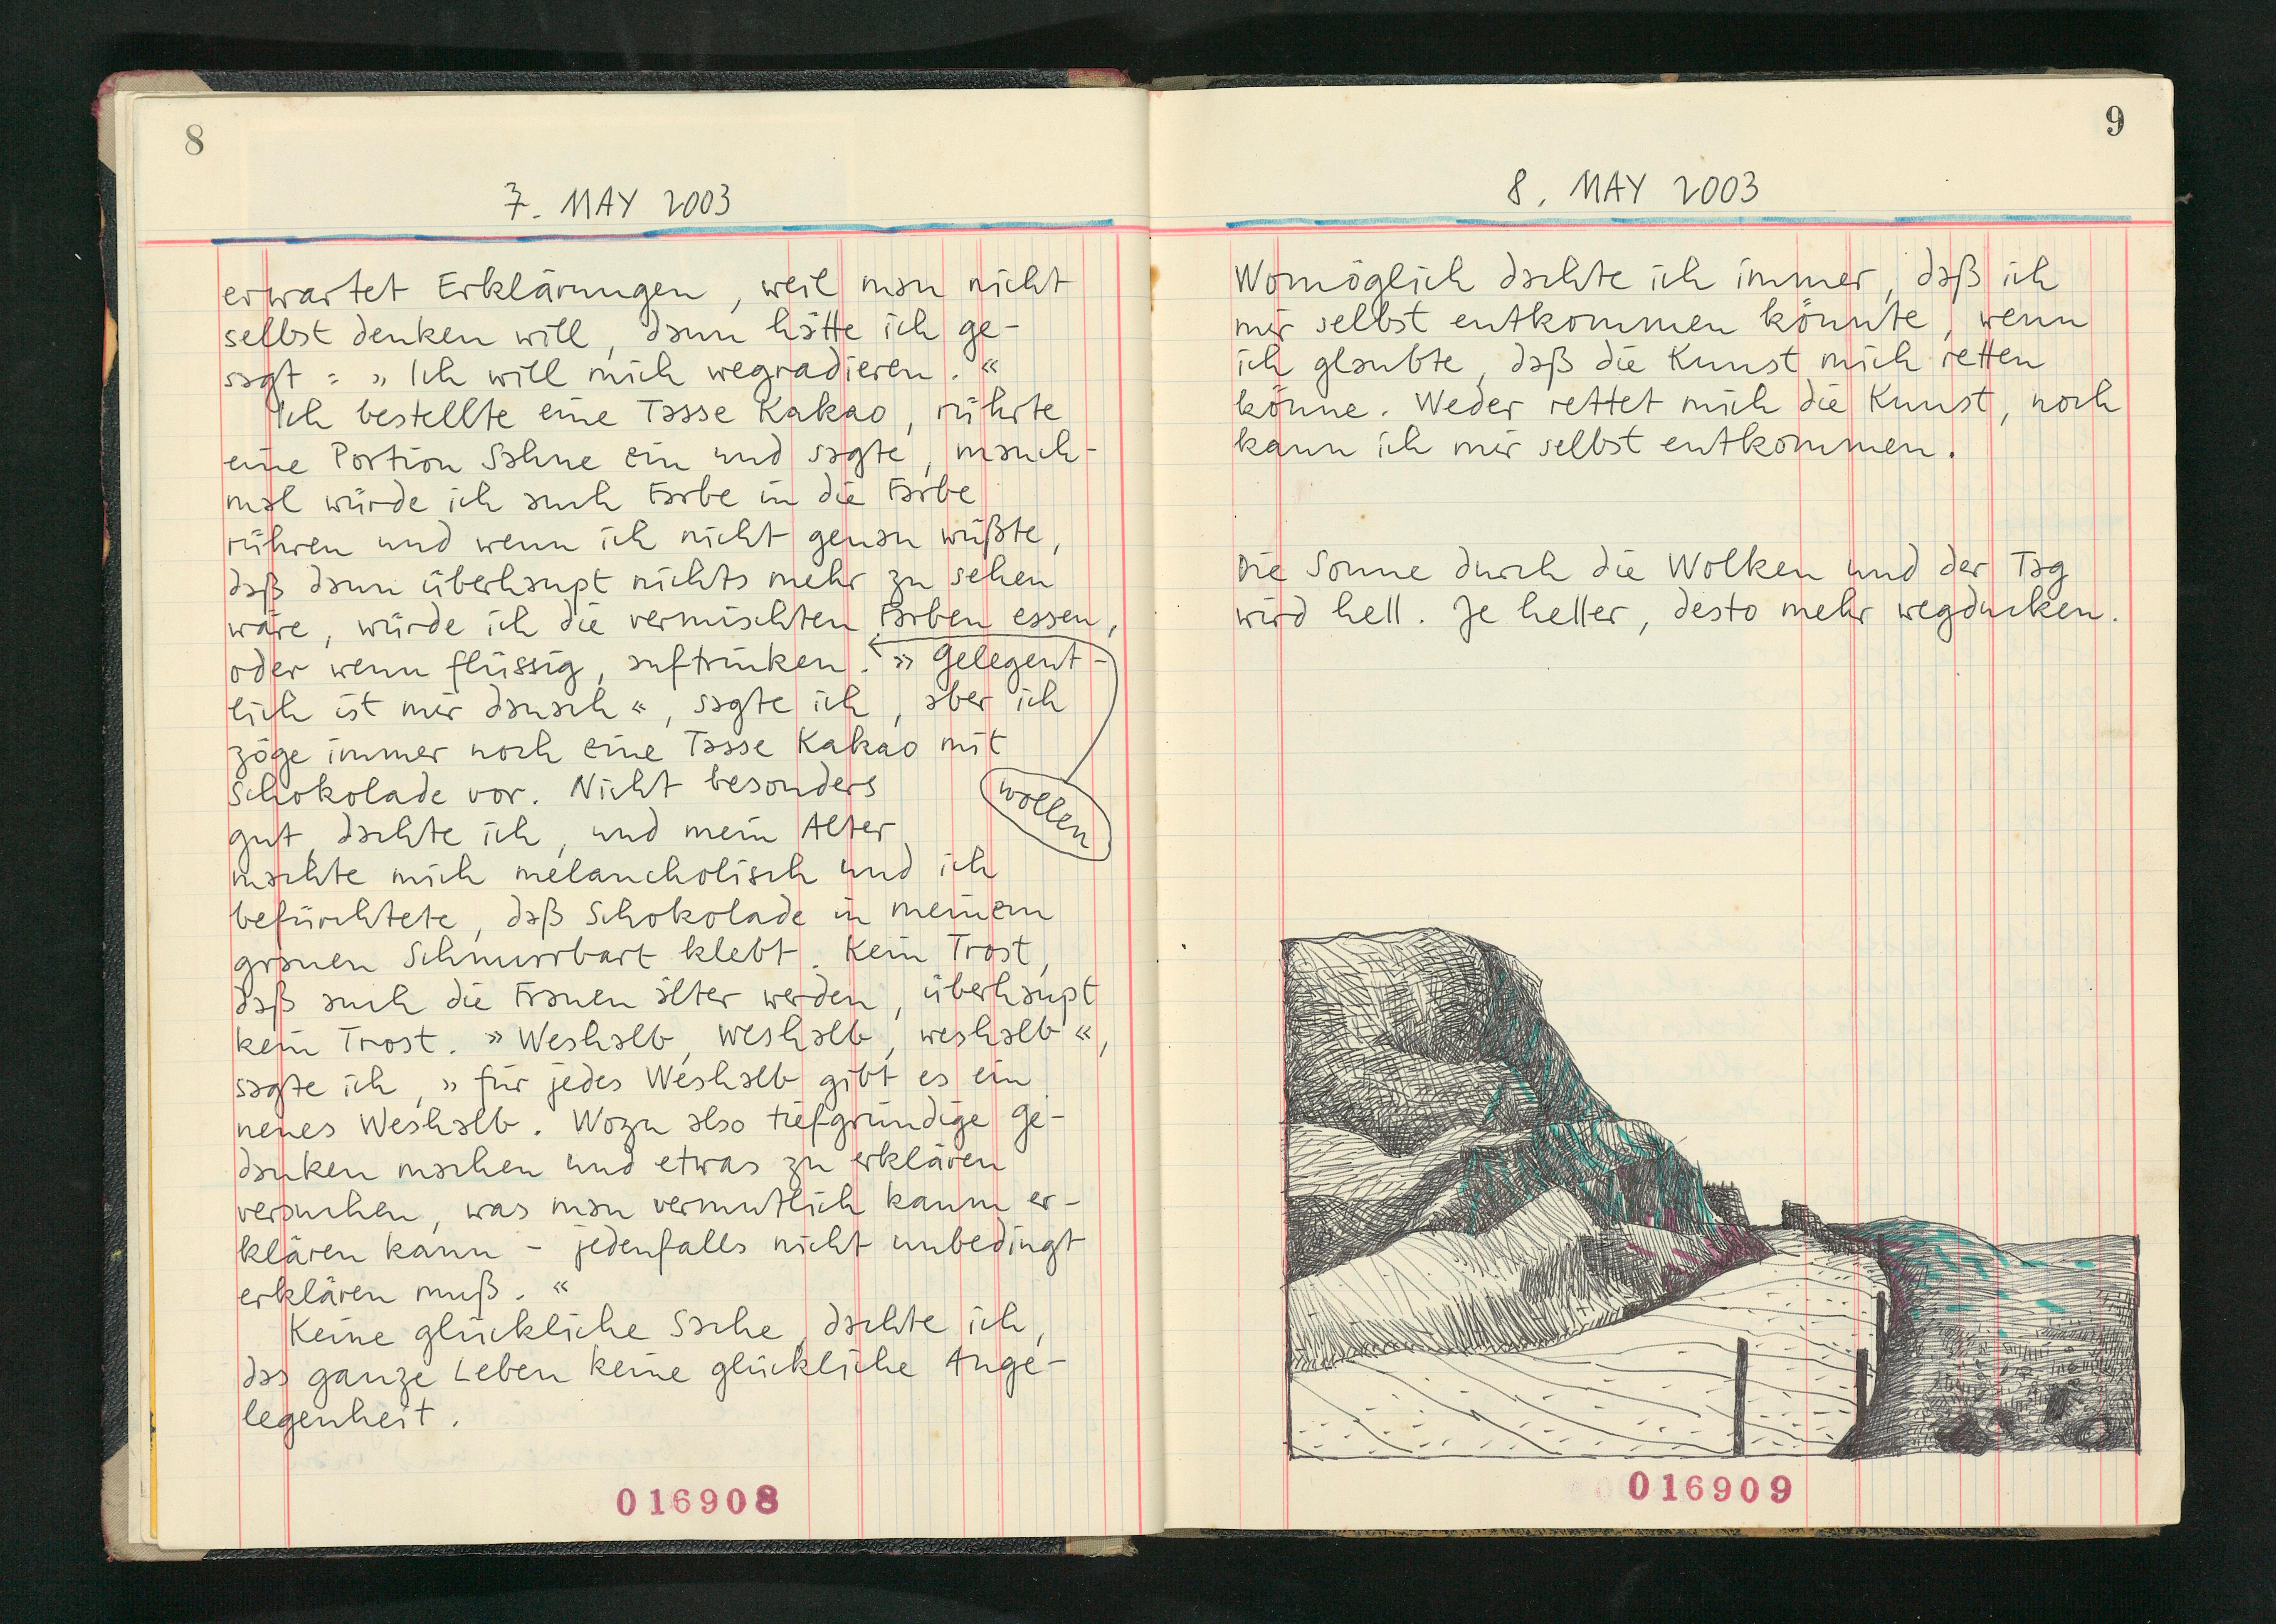 8
7. MAY 2003
erwartet Erklärungen, weil man nicht
selbst denken will, dann hätte ich ge-
sagt: »Ich will mich wegradieren.«
Ich bestellte eine Tasse Kakao, rührte
eine Portion Sahne ein und sagte, manch-
mal würde ich auch Farbe in die Farbe
rühren und wenn ich nicht genau wüßte,
daß dann überhaupt nichts mehr zu sehen
wäre, würde ich die vermischten Farben essen,
oder wenn flüssig, auftrinken. »Gelegent-
lich ist mir danach«, sagte ich, aber ich
zöge immer noch eine Tasse Kakao mit
Schokolade vor. Nicht besonders
wollen
gut, dachte ich, und mein Alter
machte mich melancholisch und ich
befürchtete, daß Schokolade in meinem
grauen Schnurrbart klebt. Kein Trost,
daß auch die Frauen älter werden, überhaupt
kein Trost. »Weshalb, weshalb, weshalb«,
sagte ich, »für jedes Weshalb gibt es ein
neues Weshalb. Wozu also tiefgründige Ge-
danken machen und etwas zu erklären
versuchen, was man vermutlich kaum er-
klären kann - jedenfalls nicht unbedingt
erklären muß.«
Keine glückliche Sache, dachte ich,
das ganze Leben keine glückliche Ange-
legenheit.
016908
9
8. MAY 2003
Womöglich dachte ich immer, daß ich
mir selbst entkommen könnte, wenn
ich glaubte, daß die Kunst mich retten
könne. Weder rettet mich die Kunst, noch
kann ich mir selbst entkommen.
Die Sonne durch die Wolken und der Tag
wird hell. Je heller, desto mehr wegducken.
016909